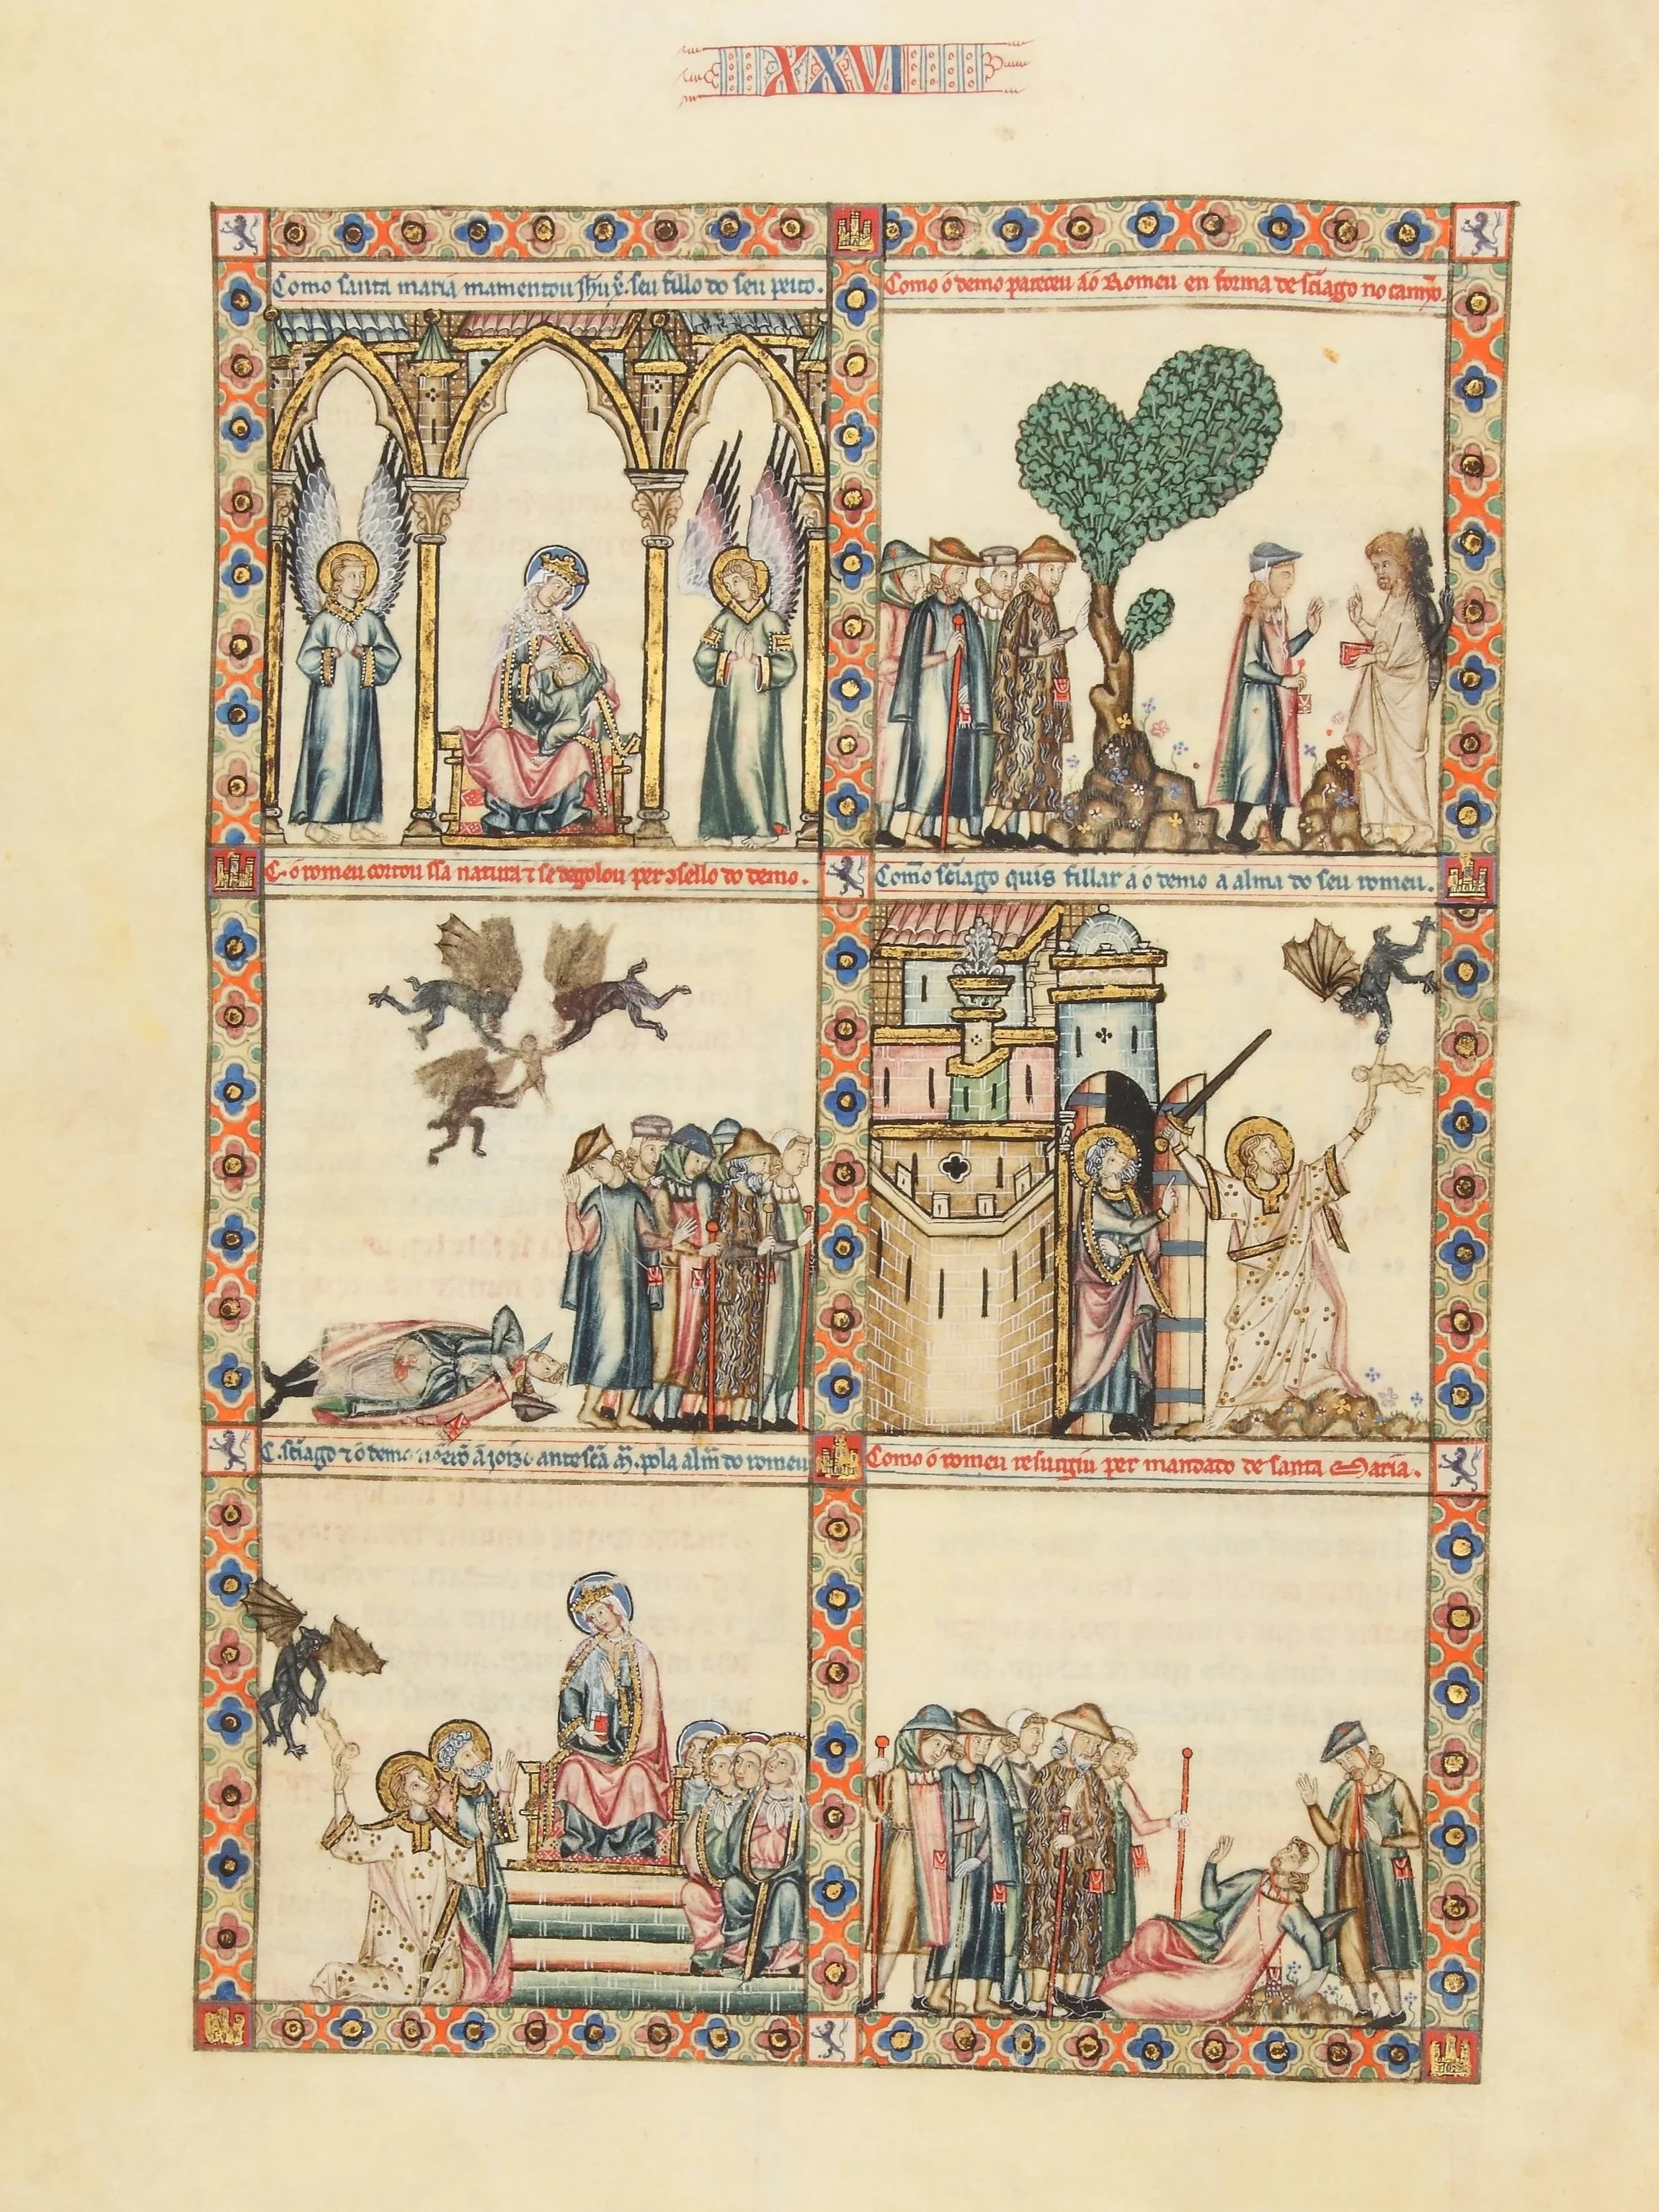 XXVI
Como santa maria mamentou jhũ x̃. seu fillo do seu peito.
Como o demo pareceu áó Romeu en forma de sc̃iago no camỹo.
C. ó romeu cortou ssã natura ⁊ se degolou per ɔsello do demo.
Como sc̃iago quis fillar á ó demo á alma do seu romeu.
C. sc̃iago ⁊ ó demo ãjoizo ante sc̃a M̃. pola alm̃ do romeu
Como ó romeu resurgiu per mandado de santa Maria.